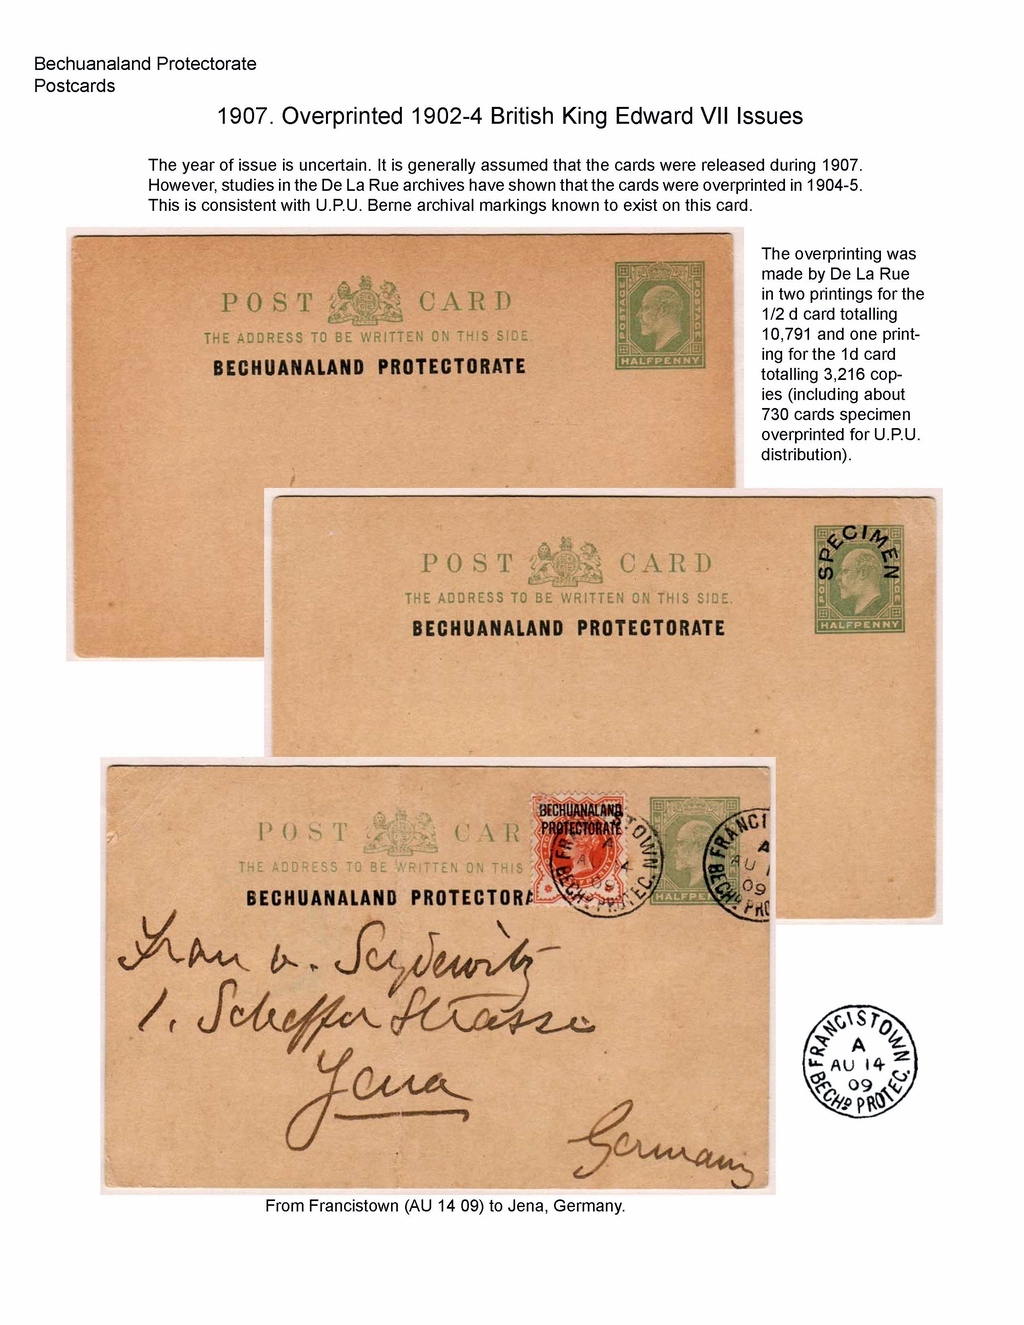 Bechuanaland Protectorate
Postcards
1907. Overprinted 1902-4 British King Edward VII Issues
The year of issue is uncertain. It is generally assumed that the cards were released during 1907.
However, studies in the De La Rue archives have shown that the cards were overprinted in 1904-5.
This is consistent with U.P.U. Berne archival markings known to exist on this card.
The overprinting was
made by De La Rue
in two printings for the
1/2 d card totalling
10,791 and one print-
ing for the 1d card
totalling 3,216 cop-
ies (including about
730 cards specimen
overprinted for U.P.U.
distribution).
POST CARD
THE ADDRESS TO BE WRITTEN ON THIS SIDE.
BECHUANALAND PROTECTORATE
POSTAGE
HALFPENNY
POST CARD
THE ADDRESS TO BE WRITTEN ON THIS SIDE.
BECHUANALAND PROTECTORATE
SPECIMEN
HALFPENNY
POST CAR
THE ADDRESS TO BE WRITTEN ON THIS
BECHUANALAND PROTECTORA
BECHUANALAND
PROTECTORATE
FRANCISTOWN
A
09
BECHD PROTEC.
HALFPE
FRANCIS
A
AU 1
09
BECHD PRO
Frau v. Seydewitz
1. Scheffer Strasse
Jena
Germany
FRANCISTOWN
A
AU 14
09
BECHD PROTEC.
From Francistown (AU 14 09) to Jena, Germany.